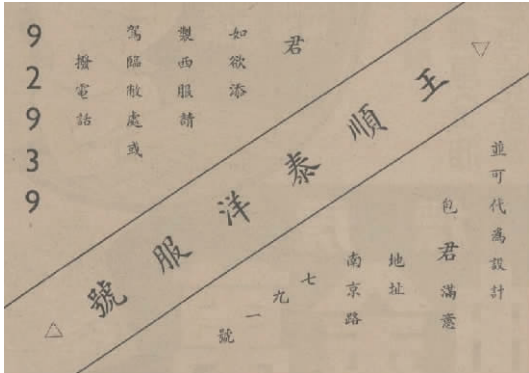 君
如欲添
製西服請
駕臨敝處或
撥電話
92939
王順泰洋服號
並可代為設計
包君滿意
地址
南京路
七九一號